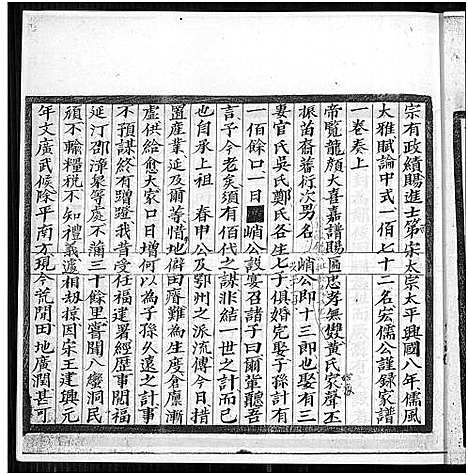 宗有政績賜進士第宋太宗太平興國八年儒風
大雅賦論中式一佰七十二名宏儒公謹錄家譜
一卷奏上
帝覽龍顏大喜嘉譜賜匾忠孝無雙黃氏家聲丕
振苗裔蕃衍次男名峭公即十三郎也娶有三
妻官氏吳氏鄭氏各生七子俱婚完娶子孫計有
一佰餘口一日峭公設宴召諸子曰爾軍聽吾
言子今老矣須有佰代之謀非結一世之計而已
也自承上祖春申公及鄂州之派流傳今日措
置產業延及爾等惜地僻田瘠難為生度倉廩漸
虛供給愈大家口日增何以為子孫久遠之計事
不預謀終有蹭蹬我昔受任福建署經歷事聞福
延汀邵漳泉等處不滿三十餘里嘗聞八蠻洞民
頑不輸糧稅不知禮義遞相刼掠因宋王建興元
年文廣武侯除平南方現今荒閒田地廣濶甚可